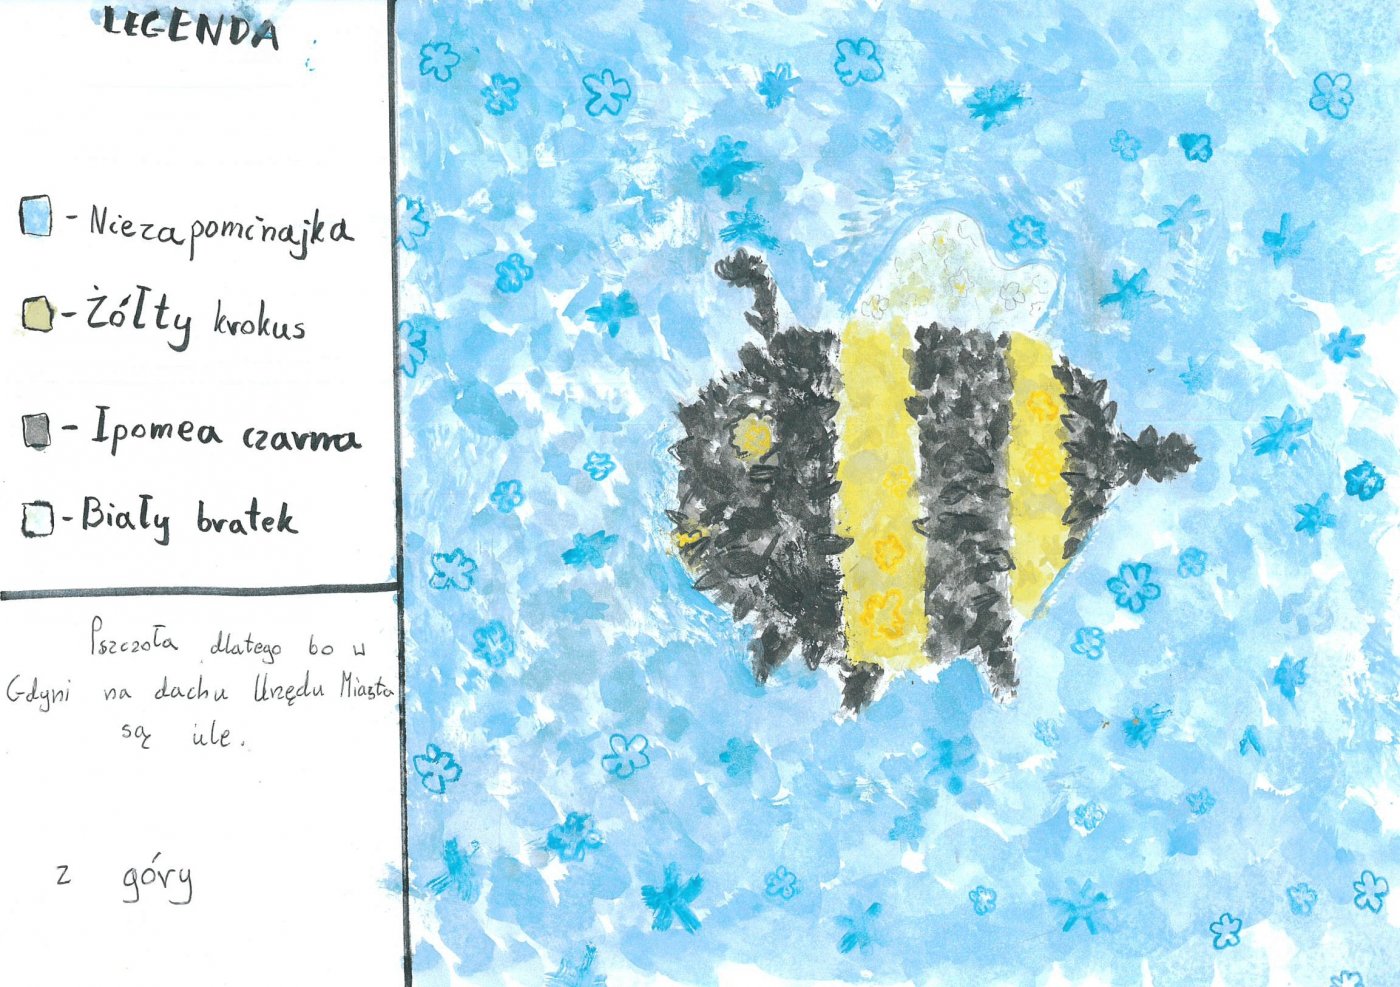 LEGENDA
- Niezapominajka
- Żółty krokus
- Ipomea czarna
- Biały bratek
Pszczoła dlatego bo w
Gdyni na dachu Urzędu Miasta
są ule.
z góry